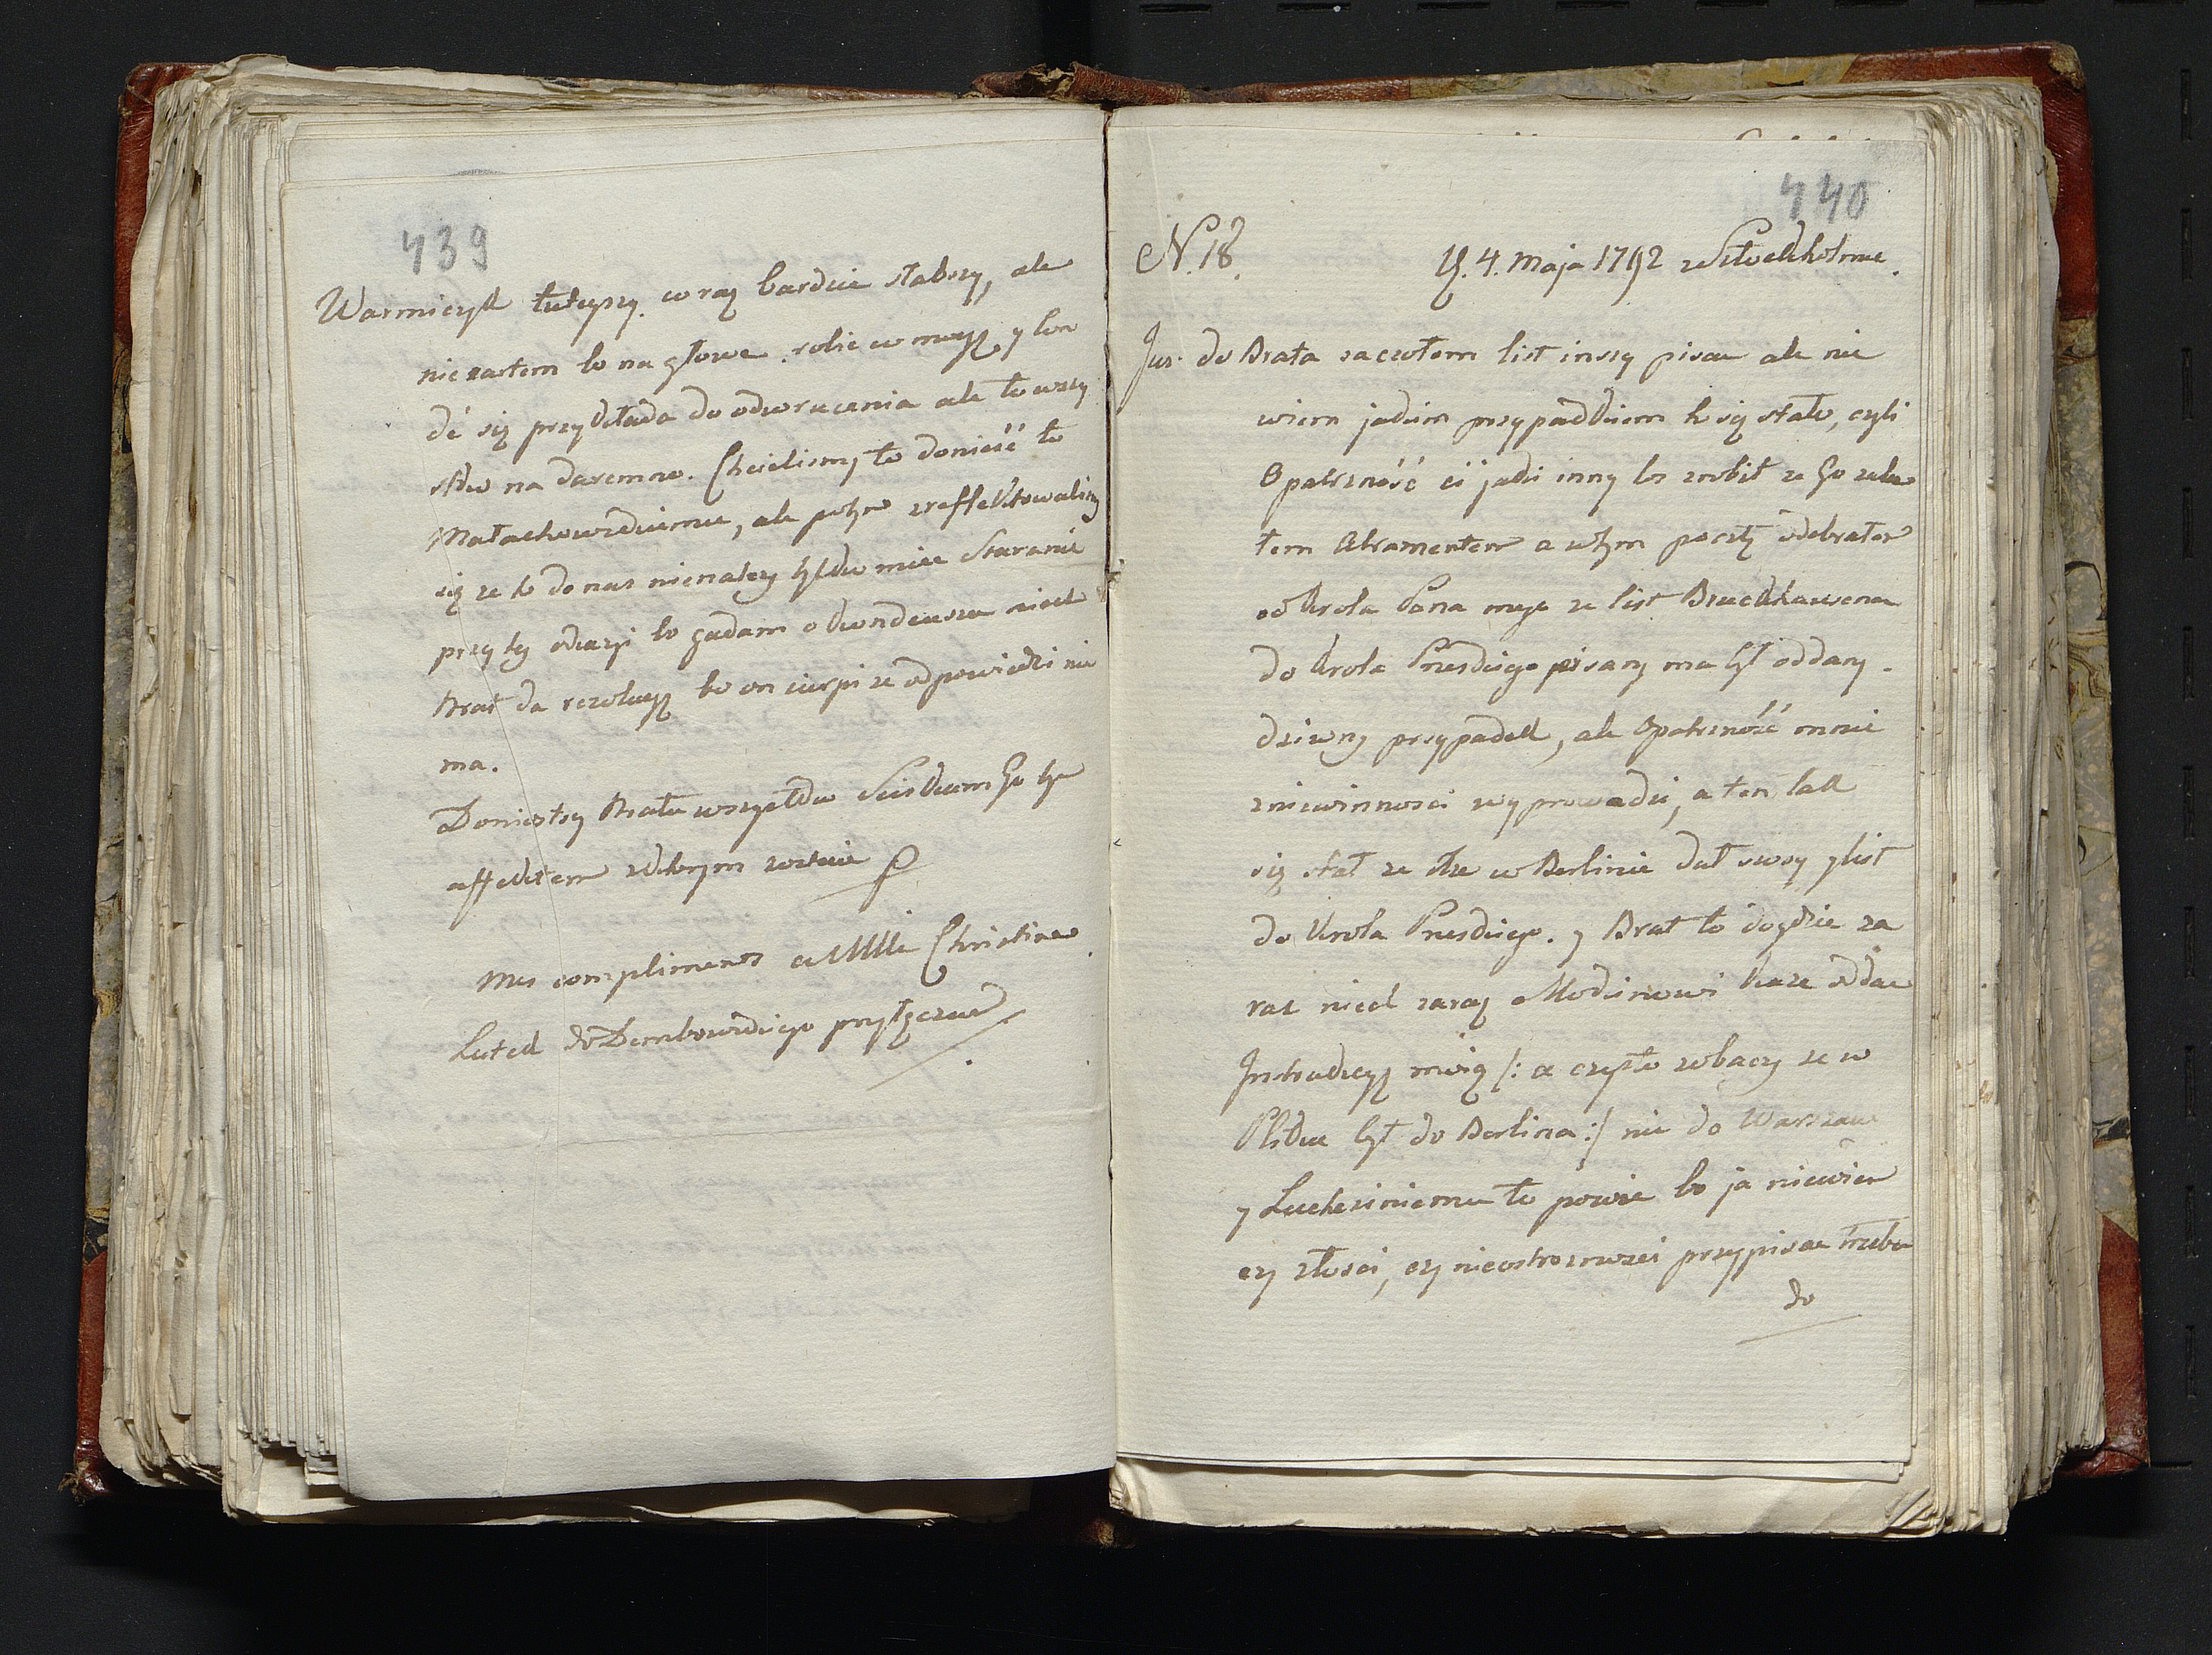 439
Warmiczk tuteyszy coraz bardzie słabszy, ale
nie zartem bo na głowe robie co mogę y lon
dé się przykłada do odwrucenia ale to wszy
stko na daremno. Chcielismy to donieść to
Małachowskiemu, ale potym zreflektowalismy
się ze to do nas nienalezy tylko miec Staranie
przy tey okazyi bo gadam o kondeuszu niech
Brat da rezolucyą bo on cierpi ze odpowiedzi nie
ma.
Doniostszy Bratu wszystko Sciskam Go tym
affektem z ktorym zostaie
Mes compliments a Mlle Christine
Lutek do Dembowskiego przyłączam
440
N. 18.
D. 4. Maja 1792 z Sztockholmu.
Juz do Brata zaczołem list inszy pisac ale nie
wiem jakim przypadkiem to się stało, czyli
Opatrzność ci jaki inny los zrobił ze Go zala
łem Atramentem a w tym poczty odebrałem
od Krola Pana mego ze list Bruckhausena
do Krola Pruskiego pisany ma być oddany.
dziwny przypadek, ale Opatrzność mnie
z niewinnosci wyprowadzi, a ten tak
się stał ze Ihre w Berlinie dał swoy y list
do Krola Pruskiego. y Brat to dogdzie za
raz niech zaraz Modinowi kaze oddac
Instrukcyą moię /: a czysto zobaczy ze w
Pliku był do Berlina :/ nie do Warszaw
y Luchesiniemu to powie bo ja niewiem
czy złosci, czy nieostroznosci przypisac trzeba
do